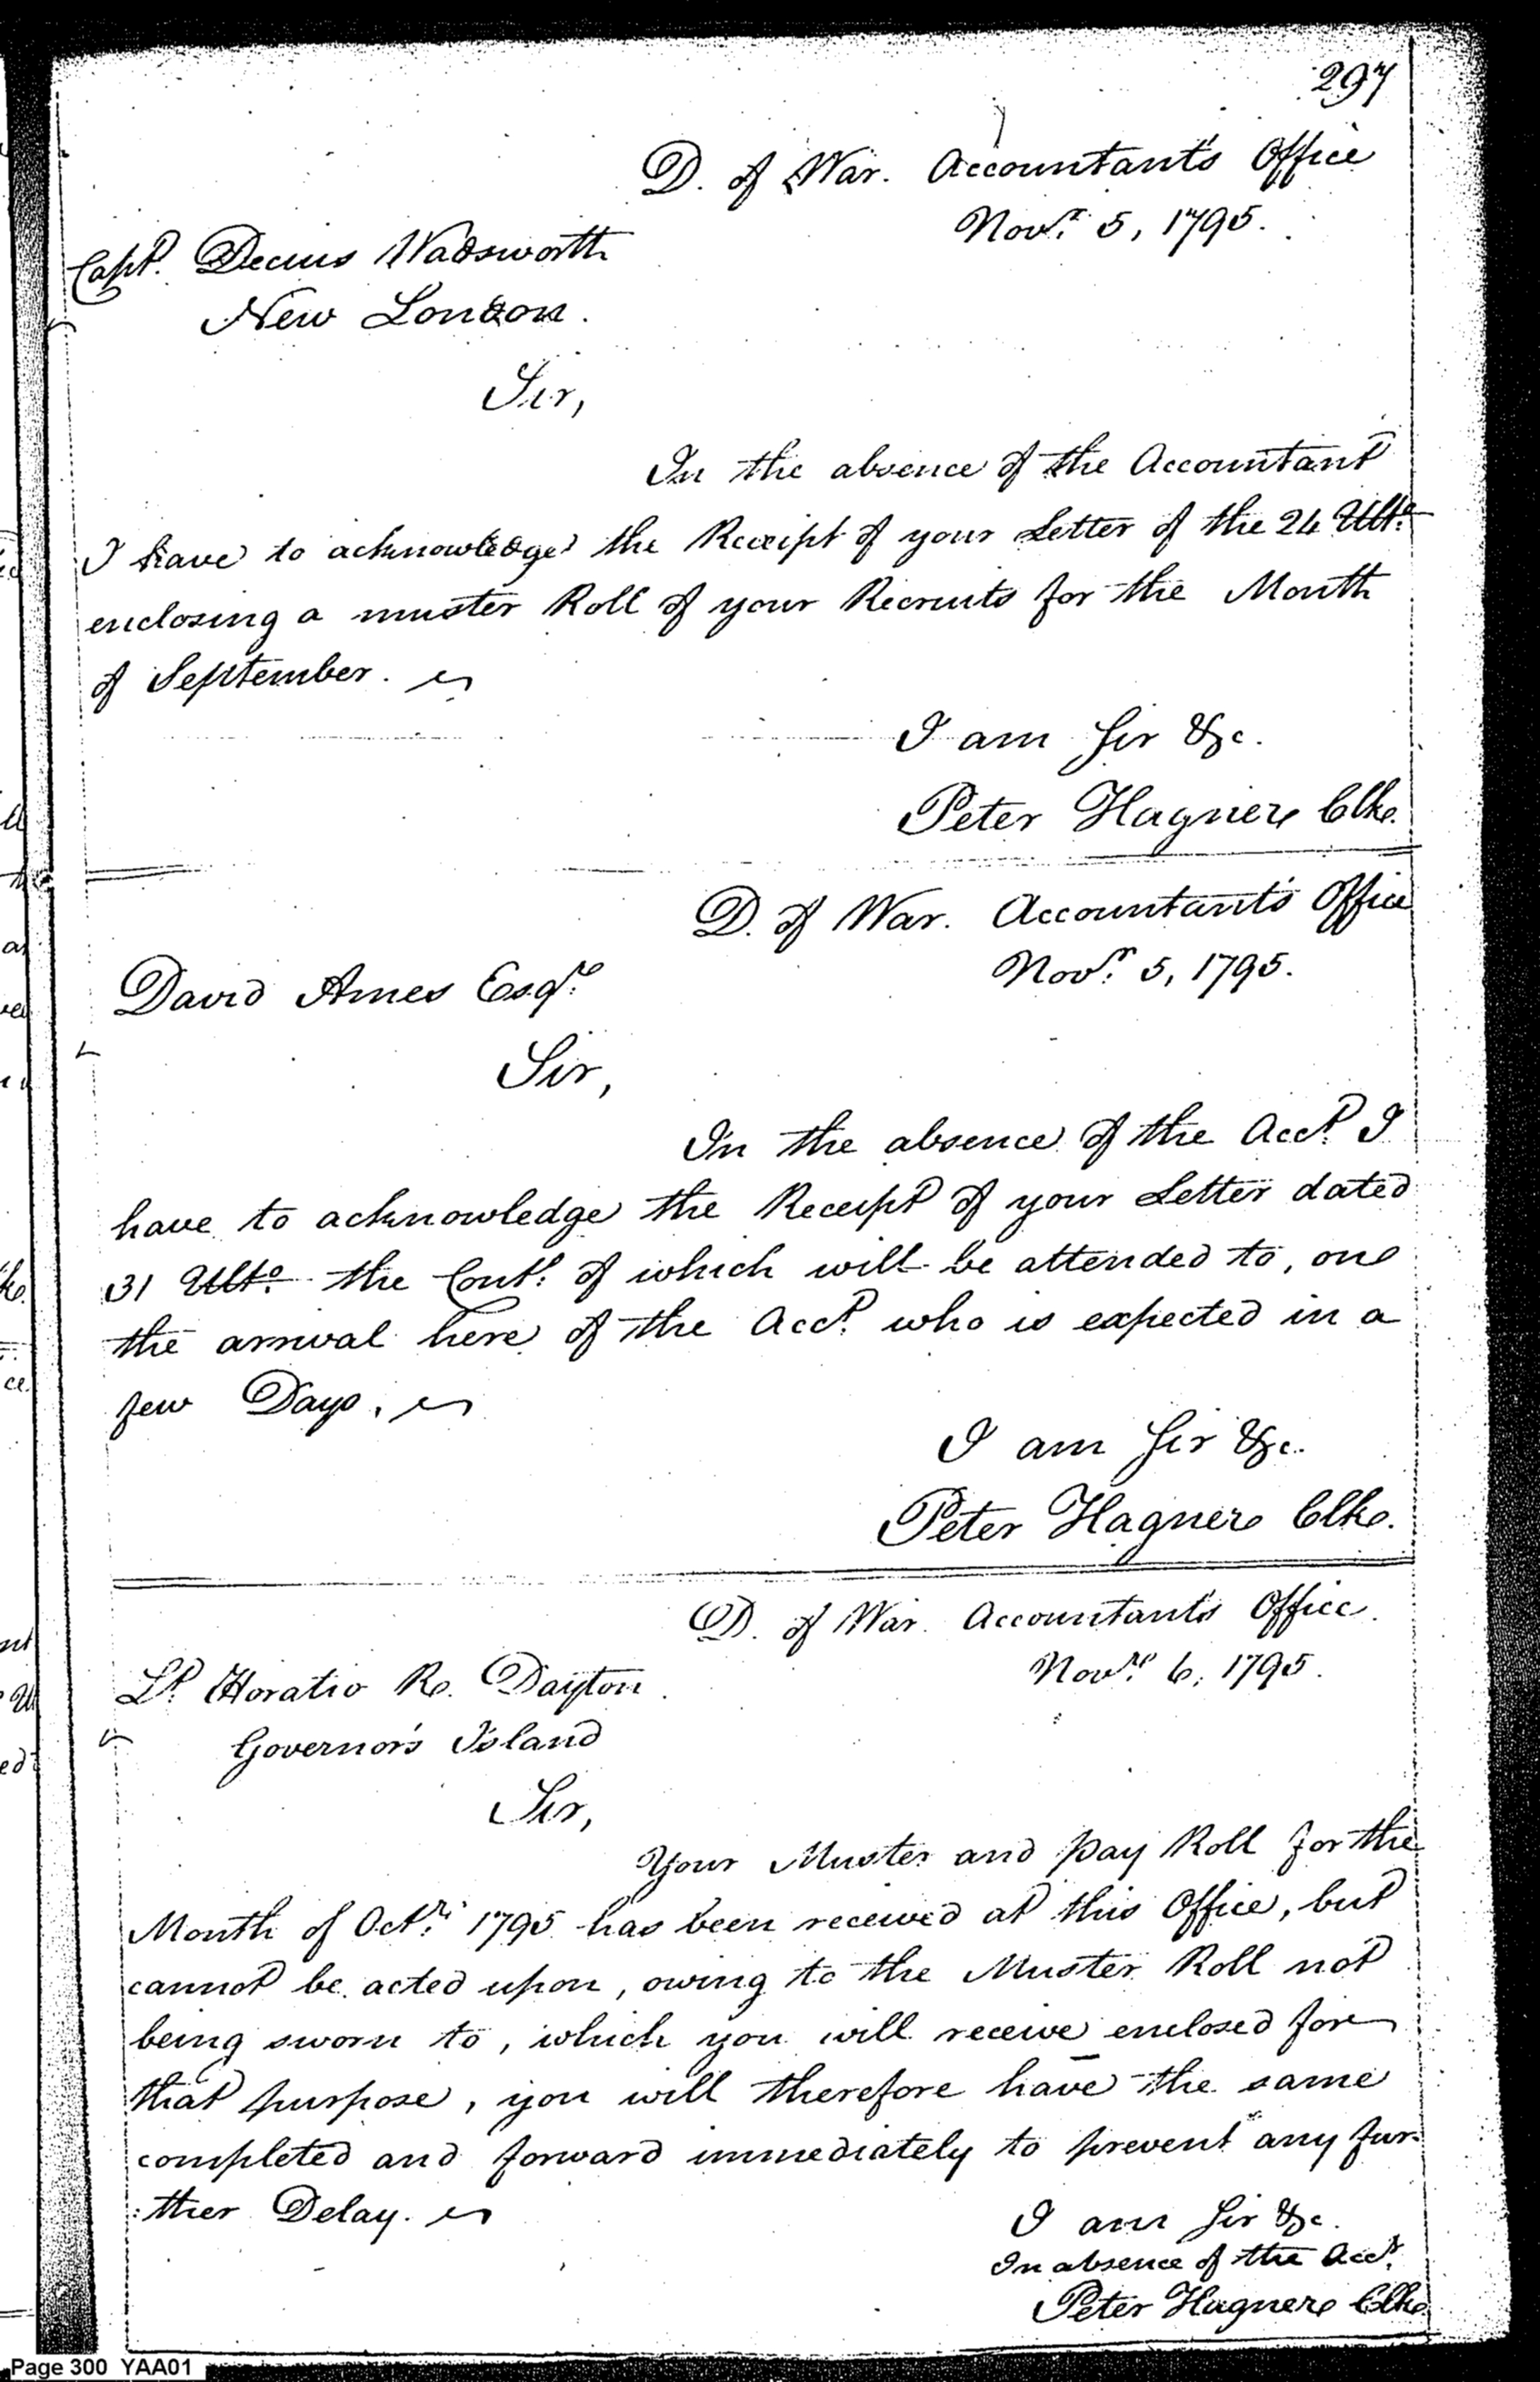 297
D. of War. Accountant's Office
Novr. 5, 1795.
Capt. Decius Wadsworth
New London.
Sir,
In the absence of the Accountant
I have to acknowledge the Receipt of your Letter of the 24 Ulto.
enclosing a muster Roll of your Recruits for the Month
of September.
I am Sir &c.
Peter Hagner Clk.
D. of War. Accountant's Office
Novr. 5, 1795.
David Ames Esqr.
Sir,
In the absence of the Acct. I
have to acknowledge the Receipt of your Letter dated
31 Ulto. the Cont. of which will be attended to, on
the arrival here of the Acct. who is expected in a
few Days.
I am Sir &c.
Peter Hagner Clk.
D. of War. Accountant's Office.
Novr. 6, 1795.
Lt. Horatio R. Dayton.
Governor's Island
Sir,
Your Muster and Pay Roll for the
Month of Octr. 1795 has been received at this Office, but
cannot be acted upon, owing to the Muster Roll not
being sworn to, which you will receive enclosed for
that purpose, you will therefore have the same
completed and forward immediately to prevent any fur-
:ther Delay.
I am Sir &c.
In absence of the Acct.
Peter Hagner Clk.
Page 300 YAA01